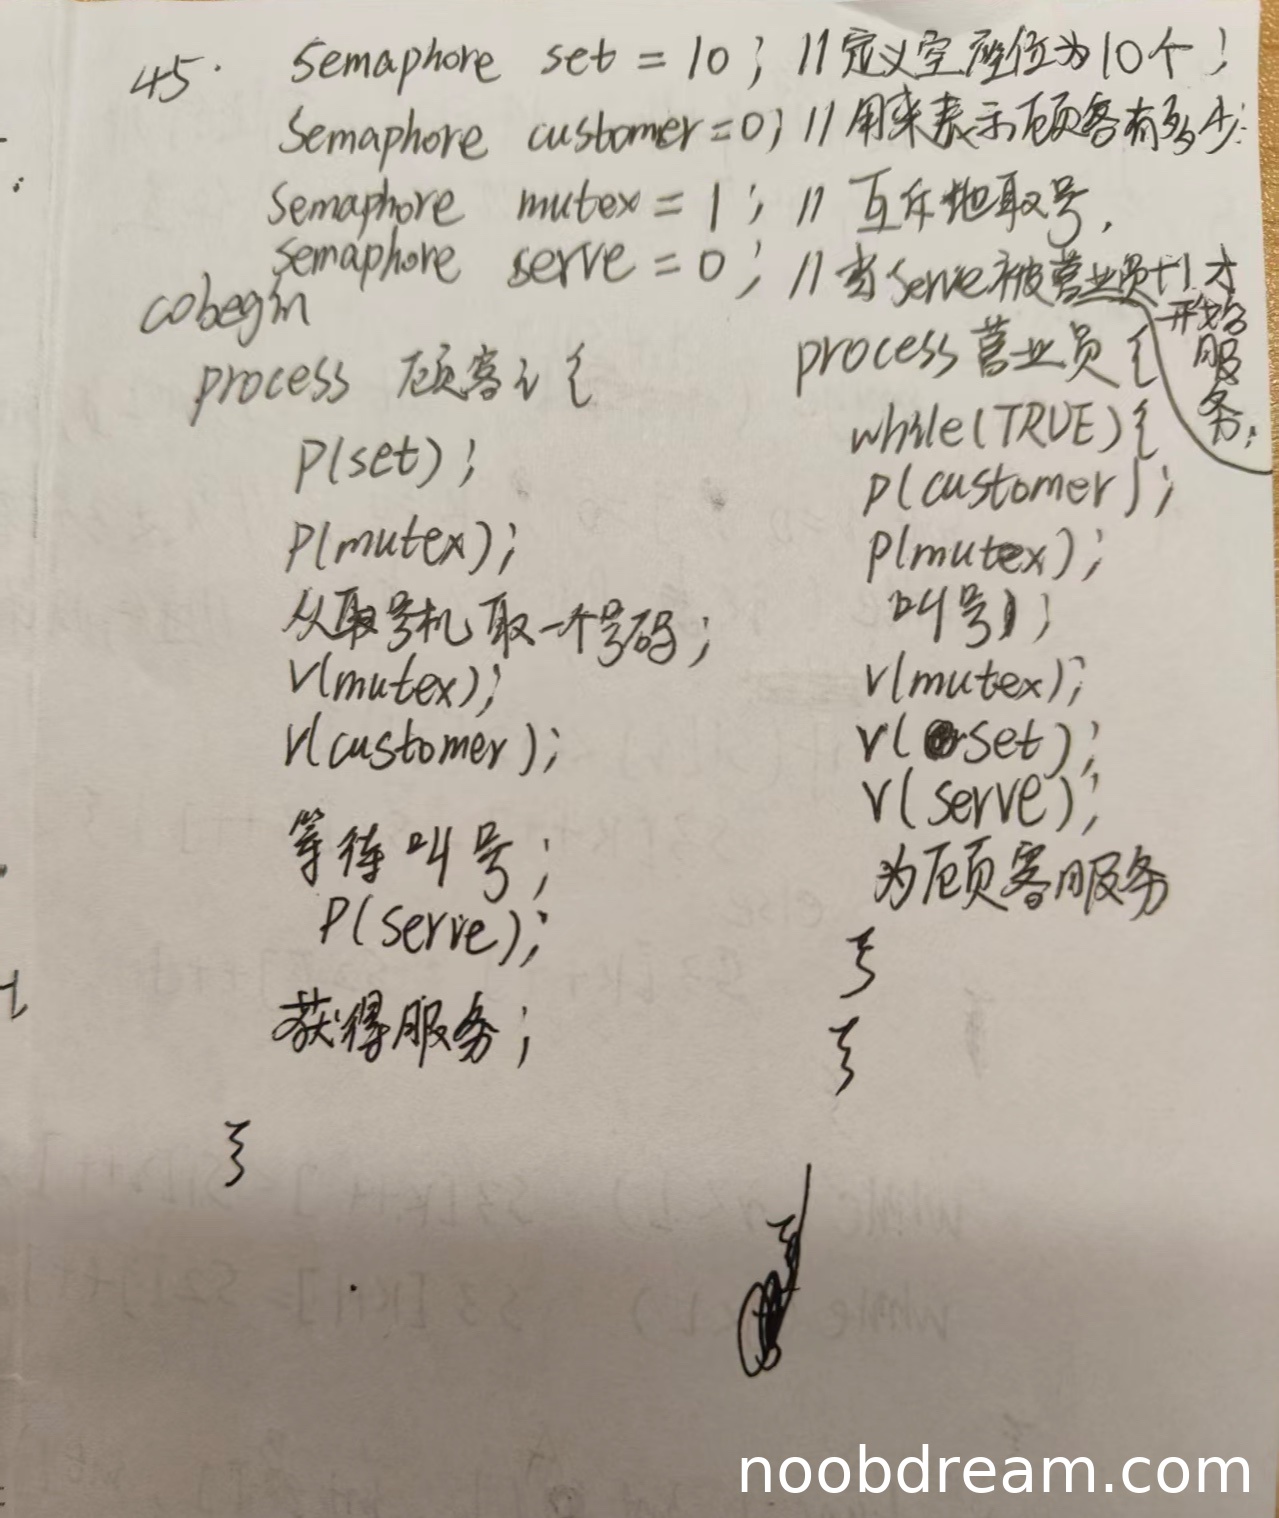 45. Semaphore set = 10; //定义空座位为10个;
Semaphore customer=0; //用来表示顾客有多少;
Semaphore mutex = 1; // 互斥地取号.
Semaphore serve = 0; //当serve被营业员+1才开始服务;
cobegin
process 顾客i {
P(set);
P(mutex);
从取号机取一个号码;
V(mutex);
V(customer);
等待叫号;
P(serve);
获得服务;
}
process 营业员 {
while(TRUE){
P(customer);
P(mutex);
叫号;
V(mutex);
V(set);
V(serve);
为顾客服务
}
}
noobdream.com